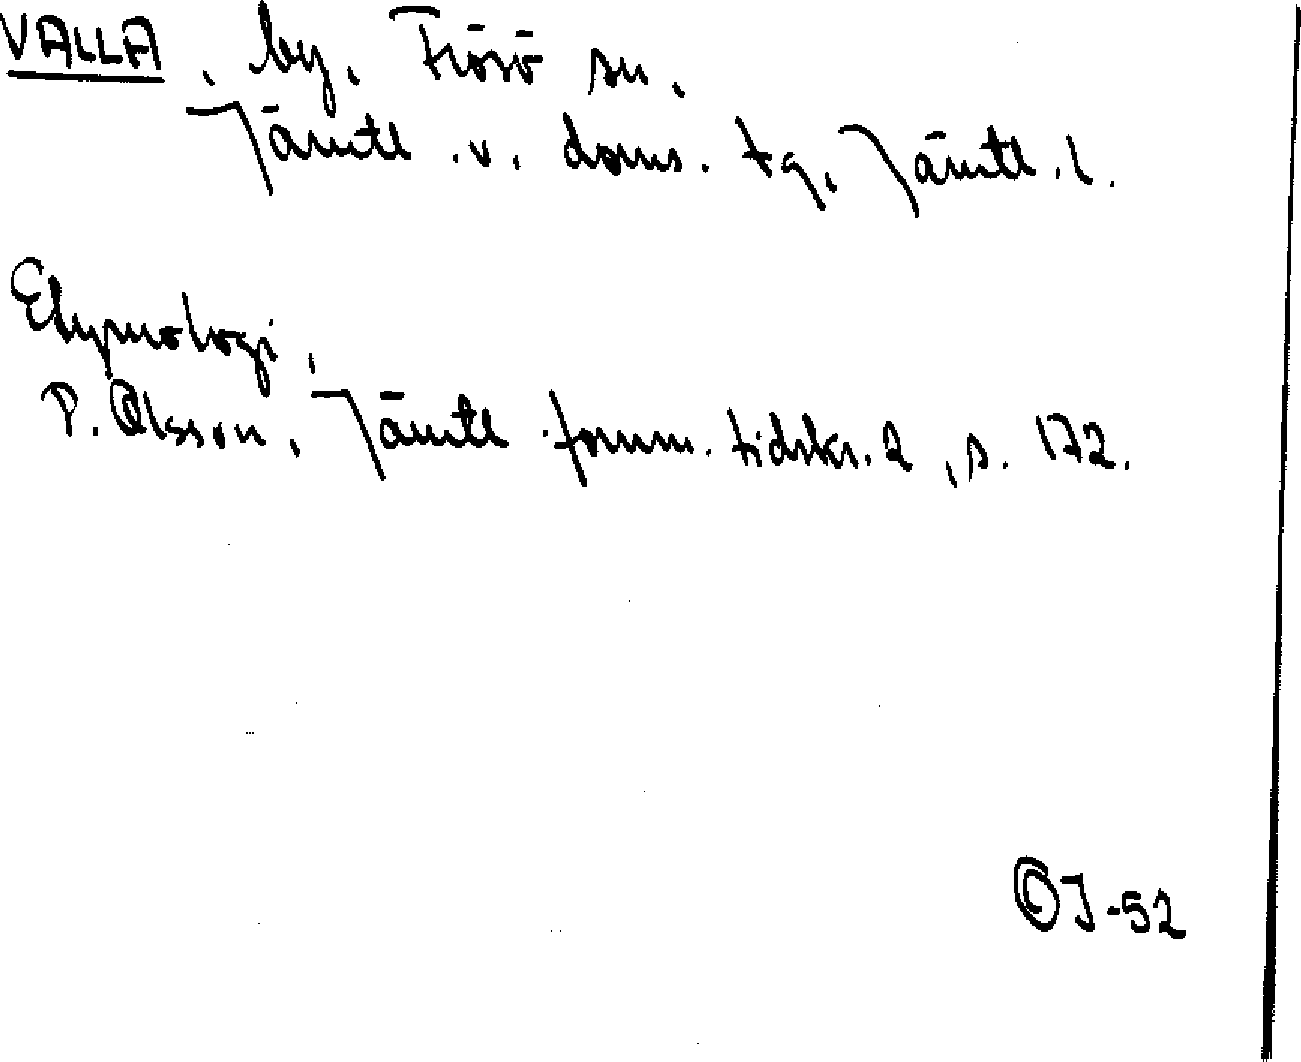 VALLA, by, Frösö sn,
Jämtl. v. doms. tg, Jämtl. l.
Etymologi,
P. Olsson, Jämtl. fornm. tidskr. 2, s. 172.
OJ-52